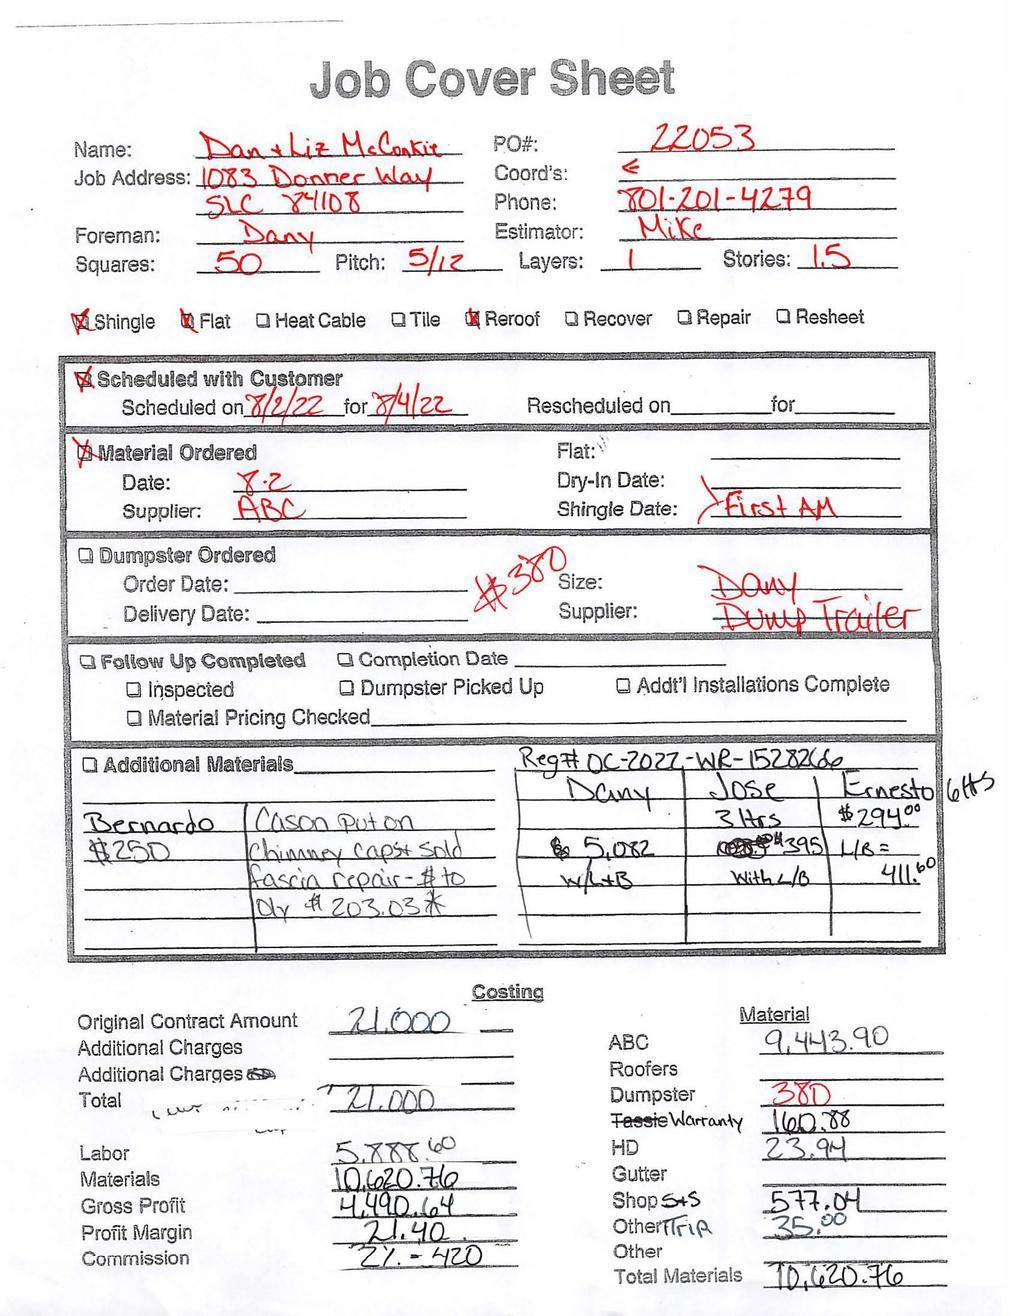 Job Cover Sheet
Name: Dan + Liz McConkie PO#: 22053
Job Address: 1083 Donner Way Coord's:
SLC 84108 Phone: 801-201-4279
Foreman: Dany Estimator: Mike
Squares: 50 Pitch: 5/12 Layers: 1 Stories: 1.5
Shingle Flat Heat Cable Tile Reroof Recover Repair Resheet
Scheduled with Customer
Scheduled on 8/2/22 for 8/4/22 Rescheduled on for
Material Ordered Flat:
Date: 8-2 Dry-In Date:
Supplier: ABC Shingle Date: First AM
Dumpster Ordered $380
Order Date: Size: Dany
Delivery Date: Supplier: Dump Trailer
Follow Up Completed Completion Date
Inspected Dumpster Picked Up Addt'l Installations Complete
Material Pricing Checked
Additional Materials Reg# OC-2022-WR-1528266
Dany Jose Ernesto 6 Hrs
Bernardo Cason put on 3 Hrs $294.00
$250 chimney caps + sold $ 5,082 $395 L/B =
fascia repair - $ to w/L+B With L/B 411.60
Oly $203.03*
Costing
Material
Original Contract Amount 21,000
ABC 9,443.90
Additional Charges
Roofers
Additional Charges
Dumpster 380
Total 21,000
Tassie Warranty 160.88
Labor 5,888.60
HD 23.94
Materials 10,620.76
Gutter
Gross Profit 4,490.64
Shop S+S 577.04
Profit Margin 21.40
Other TFIR 35.00
Commission 2% - 420
Other
Total Materials 10,620.76